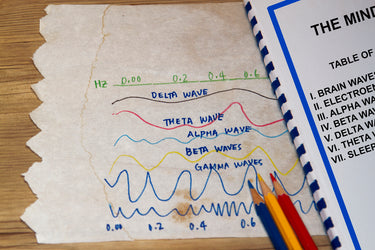 Hz 0.00 0.2 0.4 0.6
DELTA WAVE
THETA WAVE
ALPHA WAVE
BETA WAVES
GAMMA WAVES
0.00 0.2 0.4 0.6
THE MIND
TABLE OF
I. BRAIN WAVES
II. ELECTROEN
III. ALPHA WA
IV. BETA WAV
V. DELTA WA
VI. THETA W
VII. SLEEP